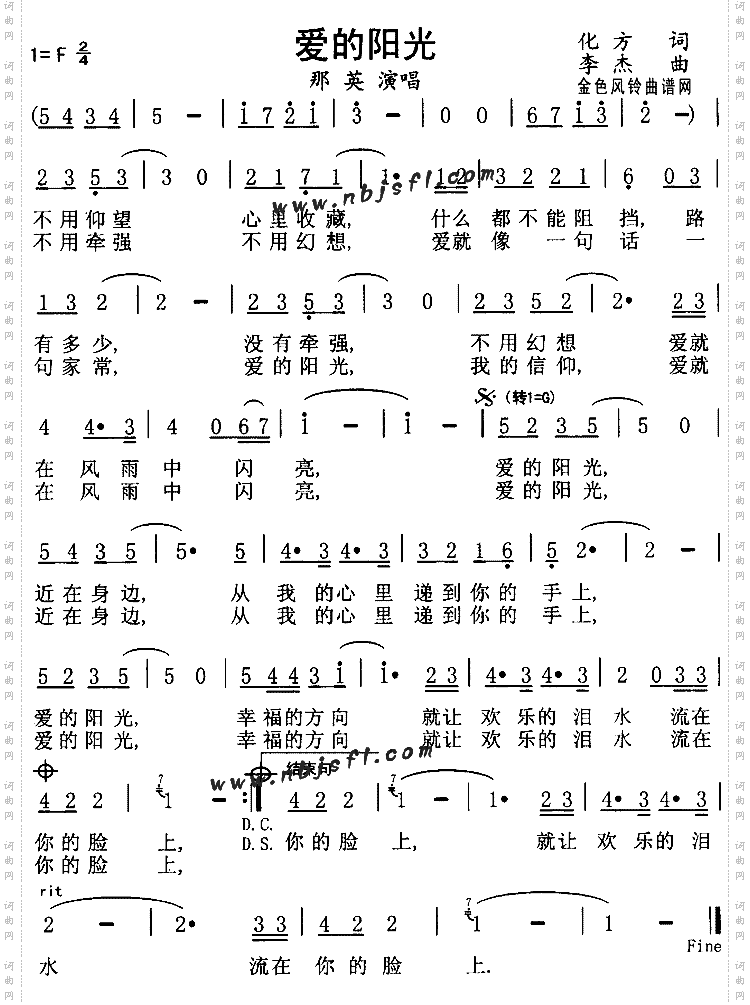 爱的阳光
1=F 2/4
化方 词
李杰 曲
那英 演唱
金色风铃曲谱网
(5434 | 5 - | 1721 | 3 - | 0 0 | 6713 | 2 -) |
2353 | 3 0 | 2171 | 1• 12 | 3221 | 6 03 |
www.nbjsfl.com
不用仰望 心里收藏, 什么都不能阻挡, 路
不用牵强 不用幻想, 爱就像一句话一
132 | 2 - | 2353 | 3 0 | 2352 | 2• 23 |
有多少, 没有牵强, 不用幻想 爱就
句家常, 爱的阳光, 我的信仰, 爱就
𝄋 (转1=G)
4 4•3 | 4 067 | 1 - | 1 - | 5235 | 5 0 |
在风雨中闪亮, 爱的阳光,
在风雨中闪亮, 爱的阳光,
5435 | 5• 5 | 4•3 4•3 | 3216 | 52• | 2 - |
近在身边, 从我的心里递到你的手上,
近在身边, 从我的心里递到你的手上,
5235 | 5 0 | 54431 | 1• 23 | 4•3 4•3 | 2 033 |
爱的阳光, 幸福的方向 就让欢乐的泪水 流在
爱的阳光, 幸福的方向 就让欢乐的泪水 流在
www.nbjsfl.com
结束句
422 | 1 - :| 422 | 1 - | 1 - | 0 23 | 4•3 4•3 |
你的脸上, D.C. 你的脸上, 就让欢乐的泪
你的脸上, D.S.
rit
2 - | 2• 33 | 422 | 1 - | 1 - |
Fine
水 流在你的脸上.
词曲网